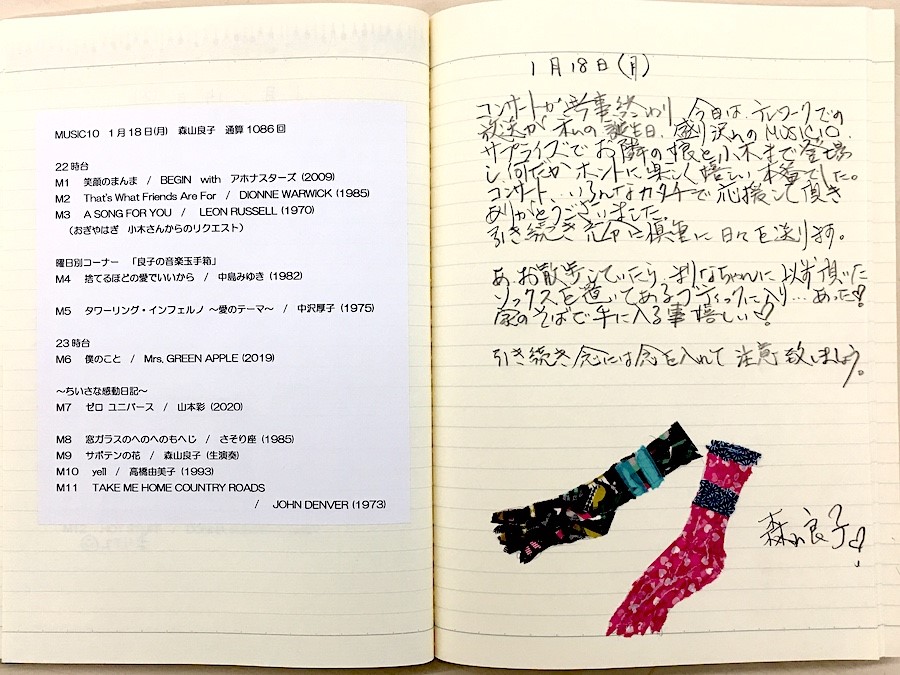 MUSIC10 1月18日(月) 森山良子 通算1086回
22時台
M1 笑顔のまんま / BEGIN with アホナスターズ (2009)
M2 That's What Friends Are For / DIONNE WARWICK (1985)
M3 A SONG FOR YOU / LEON RUSSELL (1970)
(おぎやはぎ 小木さんからのリクエスト)
曜日別コーナー 「良子の音楽玉手箱」
M4 捨てるほどの愛でいいから / 中島みゆき (1982)
M5 タワーリング・インフェルノ ～愛のテーマ～ / 中沢厚子 (1975)
23時台
M6 僕のこと / Mrs, GREEN APPLE (2019)
～ちいさな感動日記～
M7 ゼロ ユニバース / 山本彩 (2020)
M8 窓ガラスのへのへのもへじ / さそり座 (1985)
M9 サボテンの花 / 森山良子 (生演奏)
M10 yell / 高橋由美子 (1993)
M11 TAKE ME HOME COUNTRY ROADS
/ JOHN DENVER (1973)
1月18日(月)
コンサートが無事終わり、今日はテレワークでの
放送が私の誕生日、盛り沢山のMUSIC10.
サプライズでお隣の娘と小木まで登場
し、何だかホントに楽しく嬉しい本番でした。
コンサート、いろんなカタチで応援して頂き
ありがとうございました。
引き続き元気に慎重に日々を送ります。
あ、お散歩していたら、まりなちゃんに以前頂いた
ソックスを置いてあるブティックに入り…あった♡
家のそばで手に入る事嬉しい♡
引き続き念には念を入れて注意致しましょう。
森山良子